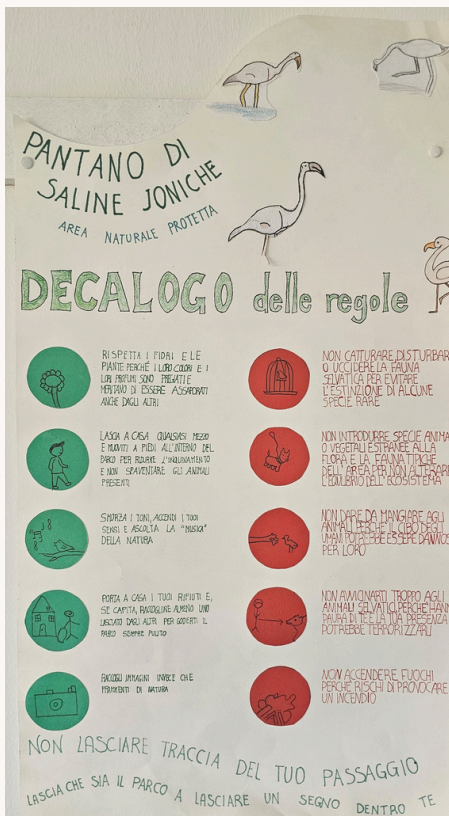 PANTANO DI
SALINE JONICHE
AREA NATURALE PROTETTA
DECALOGO delle regole
RISPETTA I FIORI E LE
PIANTE PERCHÉ I LORO COLORI E I
LORO PROFUMI SONO PREGIATI E
MERITANO DI ESSERE ASSAPORATI
ANCHE DAGLI ALTRI
LASCIA A CASA QUALSIASI MEZZO
E MUOVITI A PIEDI ALL'INTERNO DEL
PARCO PER RIDURRE L'INQUINAMENTO
E NON SPAVENTARE GLI ANIMALI
PRESENTI
SMORZA I TONI, ACCENDI I TUOI
SENSI E ASCOLTA LA "MUSICA"
DELLA NATURA
PORTA A CASA I TUOI RIFIUTI E,
SE CAPITA, RACCOGLINE ALMENO UNO
LASCIATO DAGLI ALTRI PER GODERTI IL
PARCO SEMPRE PULITO
RACCOGLI IMMAGINI INVECE CHE
FRAMMENTI DI NATURA
NON CATTURARE, DISTURBAR
O UCCIDERE LA FAUNA
SELVATICA PER EVITARE
L'ESTINZIONE DI ALCUNE
SPECIE RARE
NON INTRODURRE SPECIE ANIMA
O VEGETALI ESTRANEE ALLA
FLORA E LA FAUNA TIPICHE
DELL'AREA PER NON ALTERARE
L'EQUILIBRIO DELL'ECOSISTEMA
NON DARE DA MANGIARE AGLI
ANIMALI PERCHÉ IL CIBO DEGLI
UMANI POTREBBE ESSERE DANNOS
PER LORO
NON AVVICINARTI TROPPO AGLI
ANIMALI SELVATICI, PERCHÉ HANN
PAURA DI TE E LA TUA PRESENZA
POTREBBE TERRORIZZARLI
NON ACCENDERE FUOCHI
PERCHÉ RISCHI DI PROVOCARE
UN INCENDIO
NON LASCIARE TRACCIA DEL TUO PASSAGGIO
LASCIA CHE SIA IL PARCO A LASCIARE UN SEGNO DENTRO TE